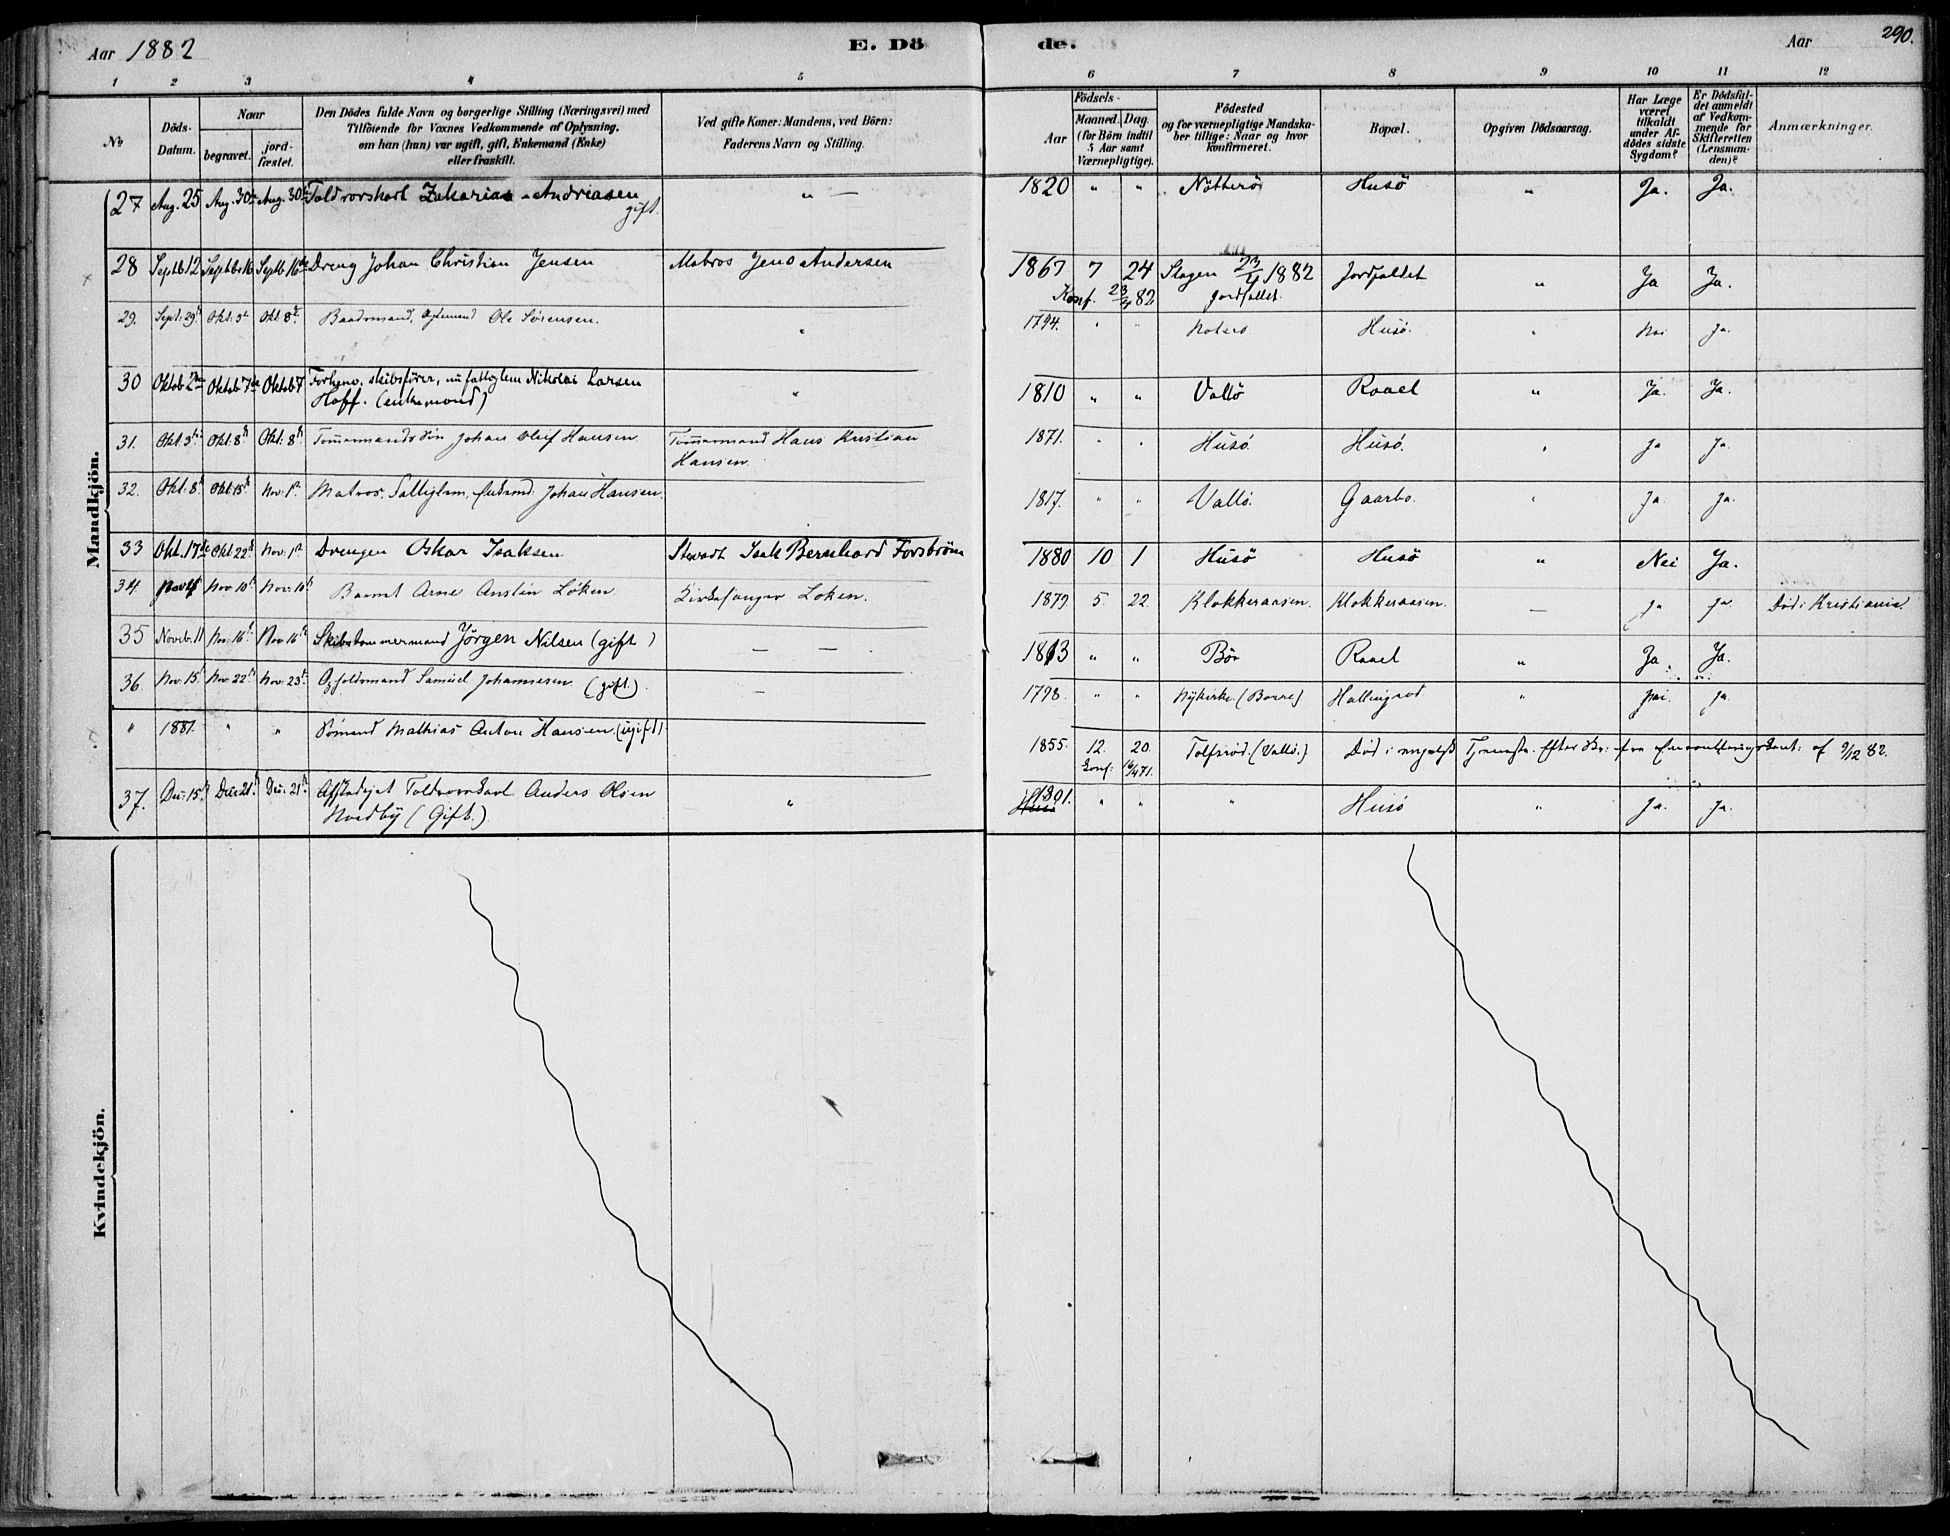 Aar 1882 E. Dö de. Aar 290.
1 2 3 4 5 6 7 8 9 10 11 12
No
Döds-Datum.
Naar
begravet.
jord-fæstet.
Den Dödes fulde Navn og borgerlige Stilling (Næringsvei) med
Tilföiende for Voxnes Vedkommende af Oplysning,
om han (hun) var ugift, gift, Enkemand (Enke)
eller fraskilt.
Ved gifte Koner: Mandens, ved Börn:
Faderens Navn og Stilling.
Födsels-
Aar
Maaned. Dag.
(for Börn indtil
5 Aar samt
Værnepligtige).
Födested
og for værnepligtige Mandska-
ber tillige: Naar og hvor
Konfirmeret.
Bopæl.
Opgiven Dödsaarsag.
Har Læge
været
tilkaldt
under Af-
dödes sidste
Sygdom?
Er Dödsfal-
det anmeldt
af Vedkom-
mende for
Skifteretten
(Lensman-
den)?
Anmærkninger.
Mandkjön.
27 Aug. 25 Aug. 30te Aug. 30te Toldrorskarl Zakarias Andriasen gift. " — 1820 " " Nötterö Husö " Ja. Ja.
28 Septb. 12 Septbr 16 Septb. 16de Dreng Johan Christian Jensen Matros Jens Andersen 1867 7 24 Slagen 23/4 1882 Jordfaldet " Ja Ja.
Konf. 23/4 82 Jordfaldet
29. Sept: 29de Okt: 3d Okt. 8de Baadsmand, Ole Sørensen. " 1794. " " Noterø Husö. " Nei Ja.
30 Oktob 2den Oktob 7de Oktob 7 Forhenv. skibsfører, nu fattiglem Nikolai Larsen
Hoff. (enkemand) " 1810 " " Vallö Raael " Ja. Ja.
31. Okt. 3die Okt. 8de Okt: 8de Tømmermands søn Johan Oluf Hansen Tømmermand Hans Kristian
Hansen. 1871. " " Husö. Husö. " Ja Ja.
32. Okt: 8de Okt. 15de Nov: 1ste Matros, Fattiglem, Enkemd: Johan Hansen. 1817. " " Vallö. Gaarbo. " Ja. Ja.
33 Okt. 17de Okt. 22de Nov: 1ste Drengen Oskar Isaksen Stevardt Isak Bernhard Forsbröm 1880 10 1 Husö Husö " Nei Ja.
34 Nov 4 Nov 10de Nov. 10de Barnet Arne Anstein Løken Kirkesanger Løken. 1879 5. 22. Klokkeraasen. Klokkeraasen. — Ja Ja Död i Kristiania.
35 Noveb. 11 Nov: 16de Nov 16de Skibstømmermand Jörgen Nilsen (gift) — — 1813 " " Bör Raael " Ja. Ja.
36. Nov. 15de Nov. 22de Nov. 23de Afholdsmand Samuel Johannesen (gift). — 1798. " " Nykirke (Borre) Hallingrød " Nei. Ja.
" 1881. " " Sömand Mathias Anton Hansen. (ugift) 1855. 12. 20. Tolfsrød. (Vallö.) Död i engelsk Tjeneste. Efter Skr: fra af 9/12 82.
Konf: 16/4 71.
37. Dec. 15de Dec 21de Dec: 21de Afskediget Toldrorskarl Anders Olsen
Nordby (Gift.) " 1801. " " " Husö " Ja. Ja.
Kvindekjön.